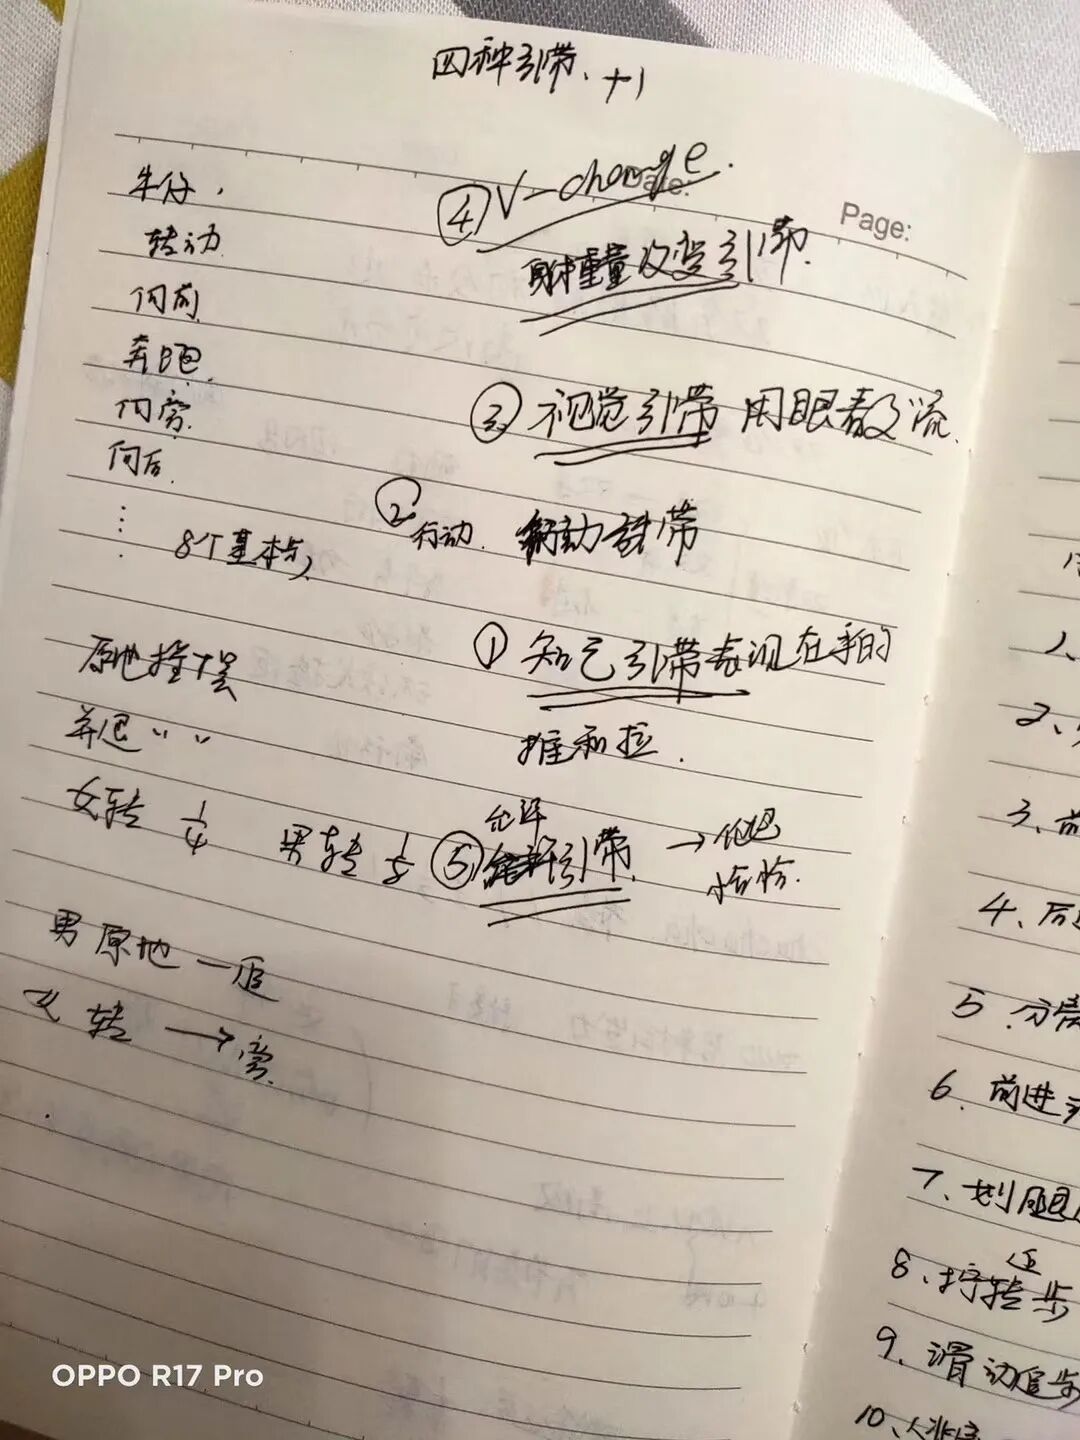 四种引带、+1
牛仔,
④V-change.
Date:
Page:
转动
重量改变引带.
向前
奔跑.
③视觉引带 用眼表交流.
向旁.
向后.
②行动. 带
8个基本步
①知己引带表现在手的
推和拉.
原地摇摆
并退〃
女转 1/4 男转
允许
⑤引带 →伦巴
恰恰.
男原地一追
女转→旁.
1、
2、
3、前
4、后
5.分
6.前进
7.
8、拧转步
9、滑动追步
10、
OPPO R17 Pro